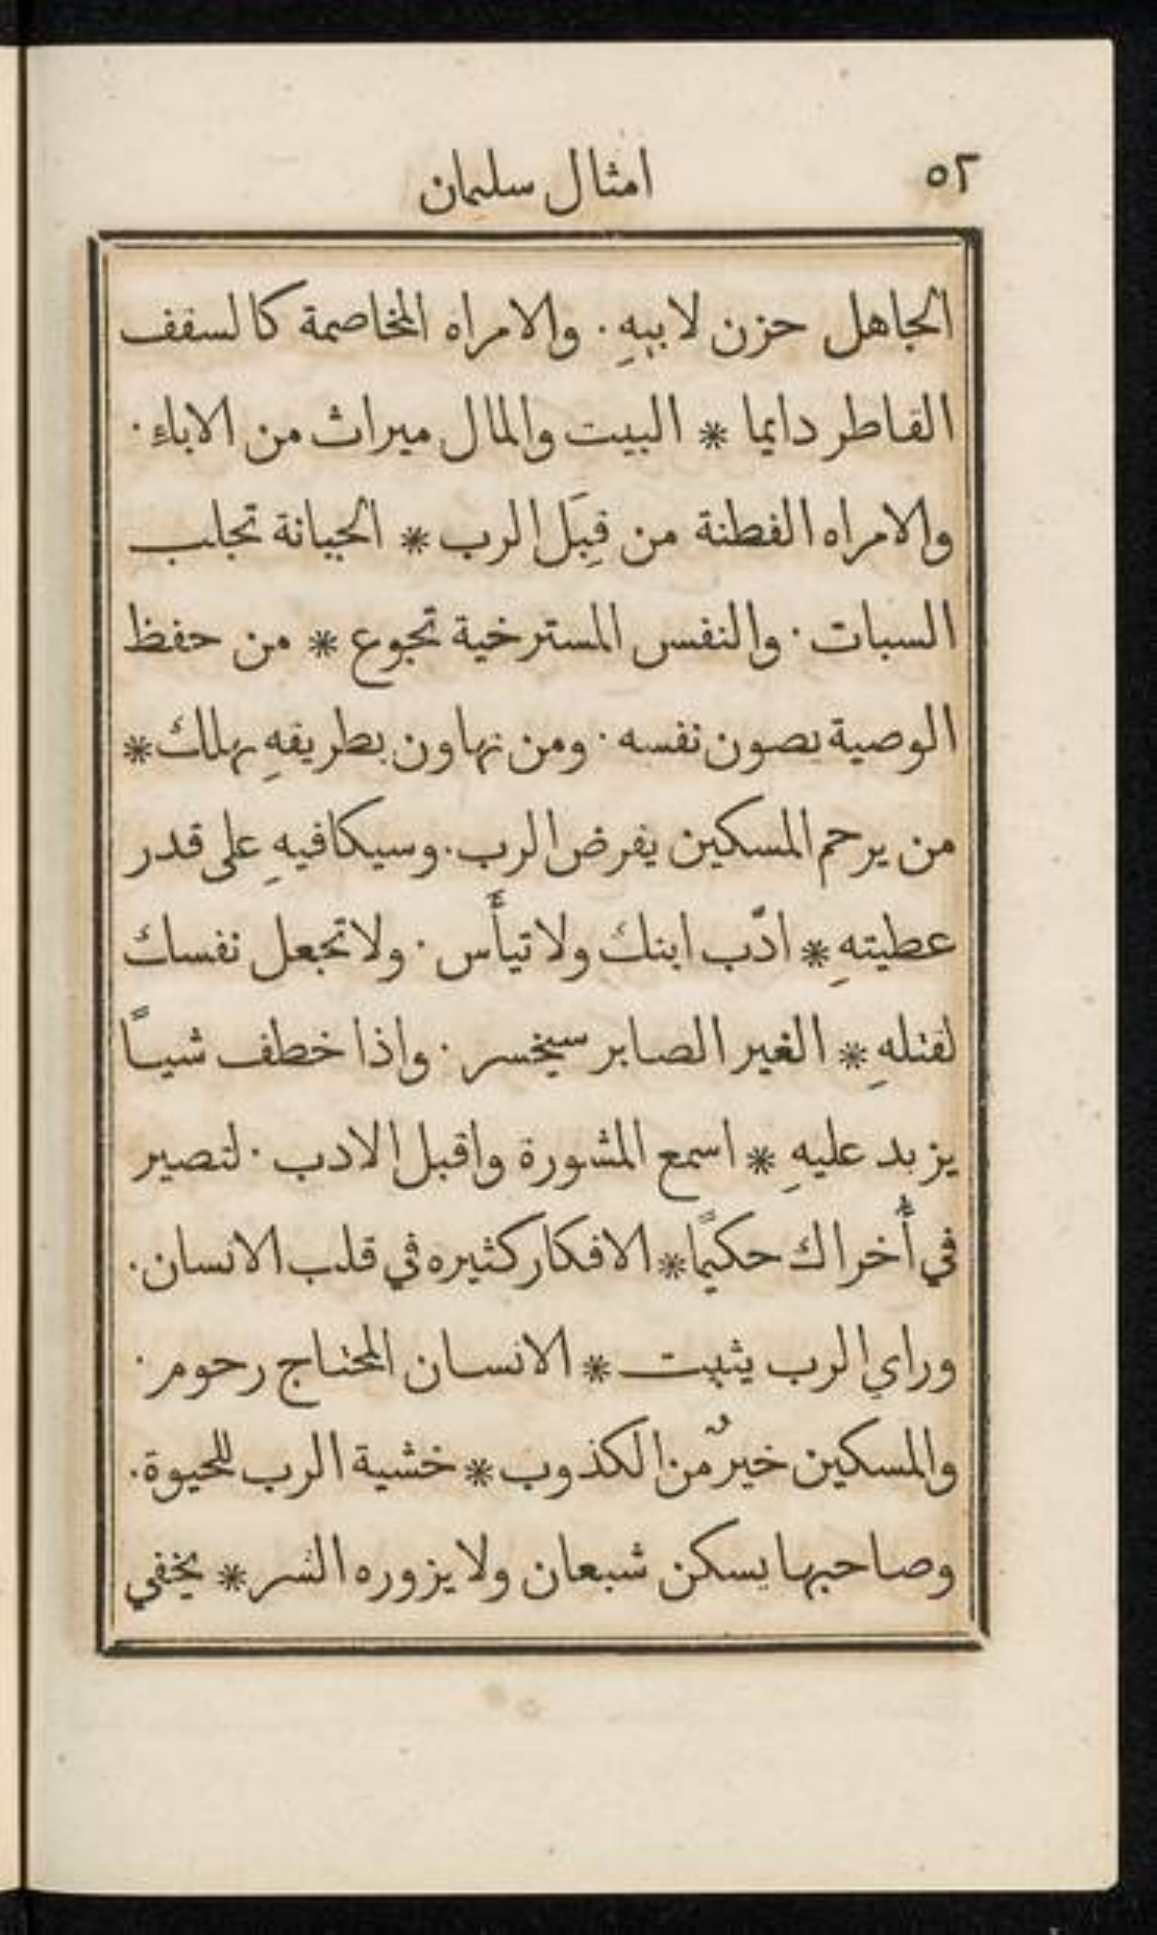 ٥٢
امثال سليمان
الجاهل حزن لابيهِ · والامراه المخاصمة كالسقف
القاطر دايما * البيت والمال ميراث من الاباء ·
والامراه الفطنة من قِبَل الرب * الخيانة تجلب
السبات · والنفس المسترخية تجوع * من حفظ
الوصية يصون نفسه · ومن تهاون بطريقهِ يهلك *
من يرحم المسكين يقرض الرب · وسيكافيهِ على قدر
عطيتهِ * ادّب ابنك ولا تيأَس · ولا تجعل نفسك
لقتلهِ * الغير الصابر سيخسر · واذا خطف شيـاً
يزيد عليهِ * اسمع المشورة واقبل الادب · لتصير
في أُخراك حكيمًا * الافكار كثيره في قلب الانسان ·
وراي الرب يثبت * الانسان المحتاج رحوم ·
والمسكين خيرٌ من الكذوب * خشية الرب للحيوة ·
وصاحبها يسكن شبعان ولا يزوره الشر * يخفي